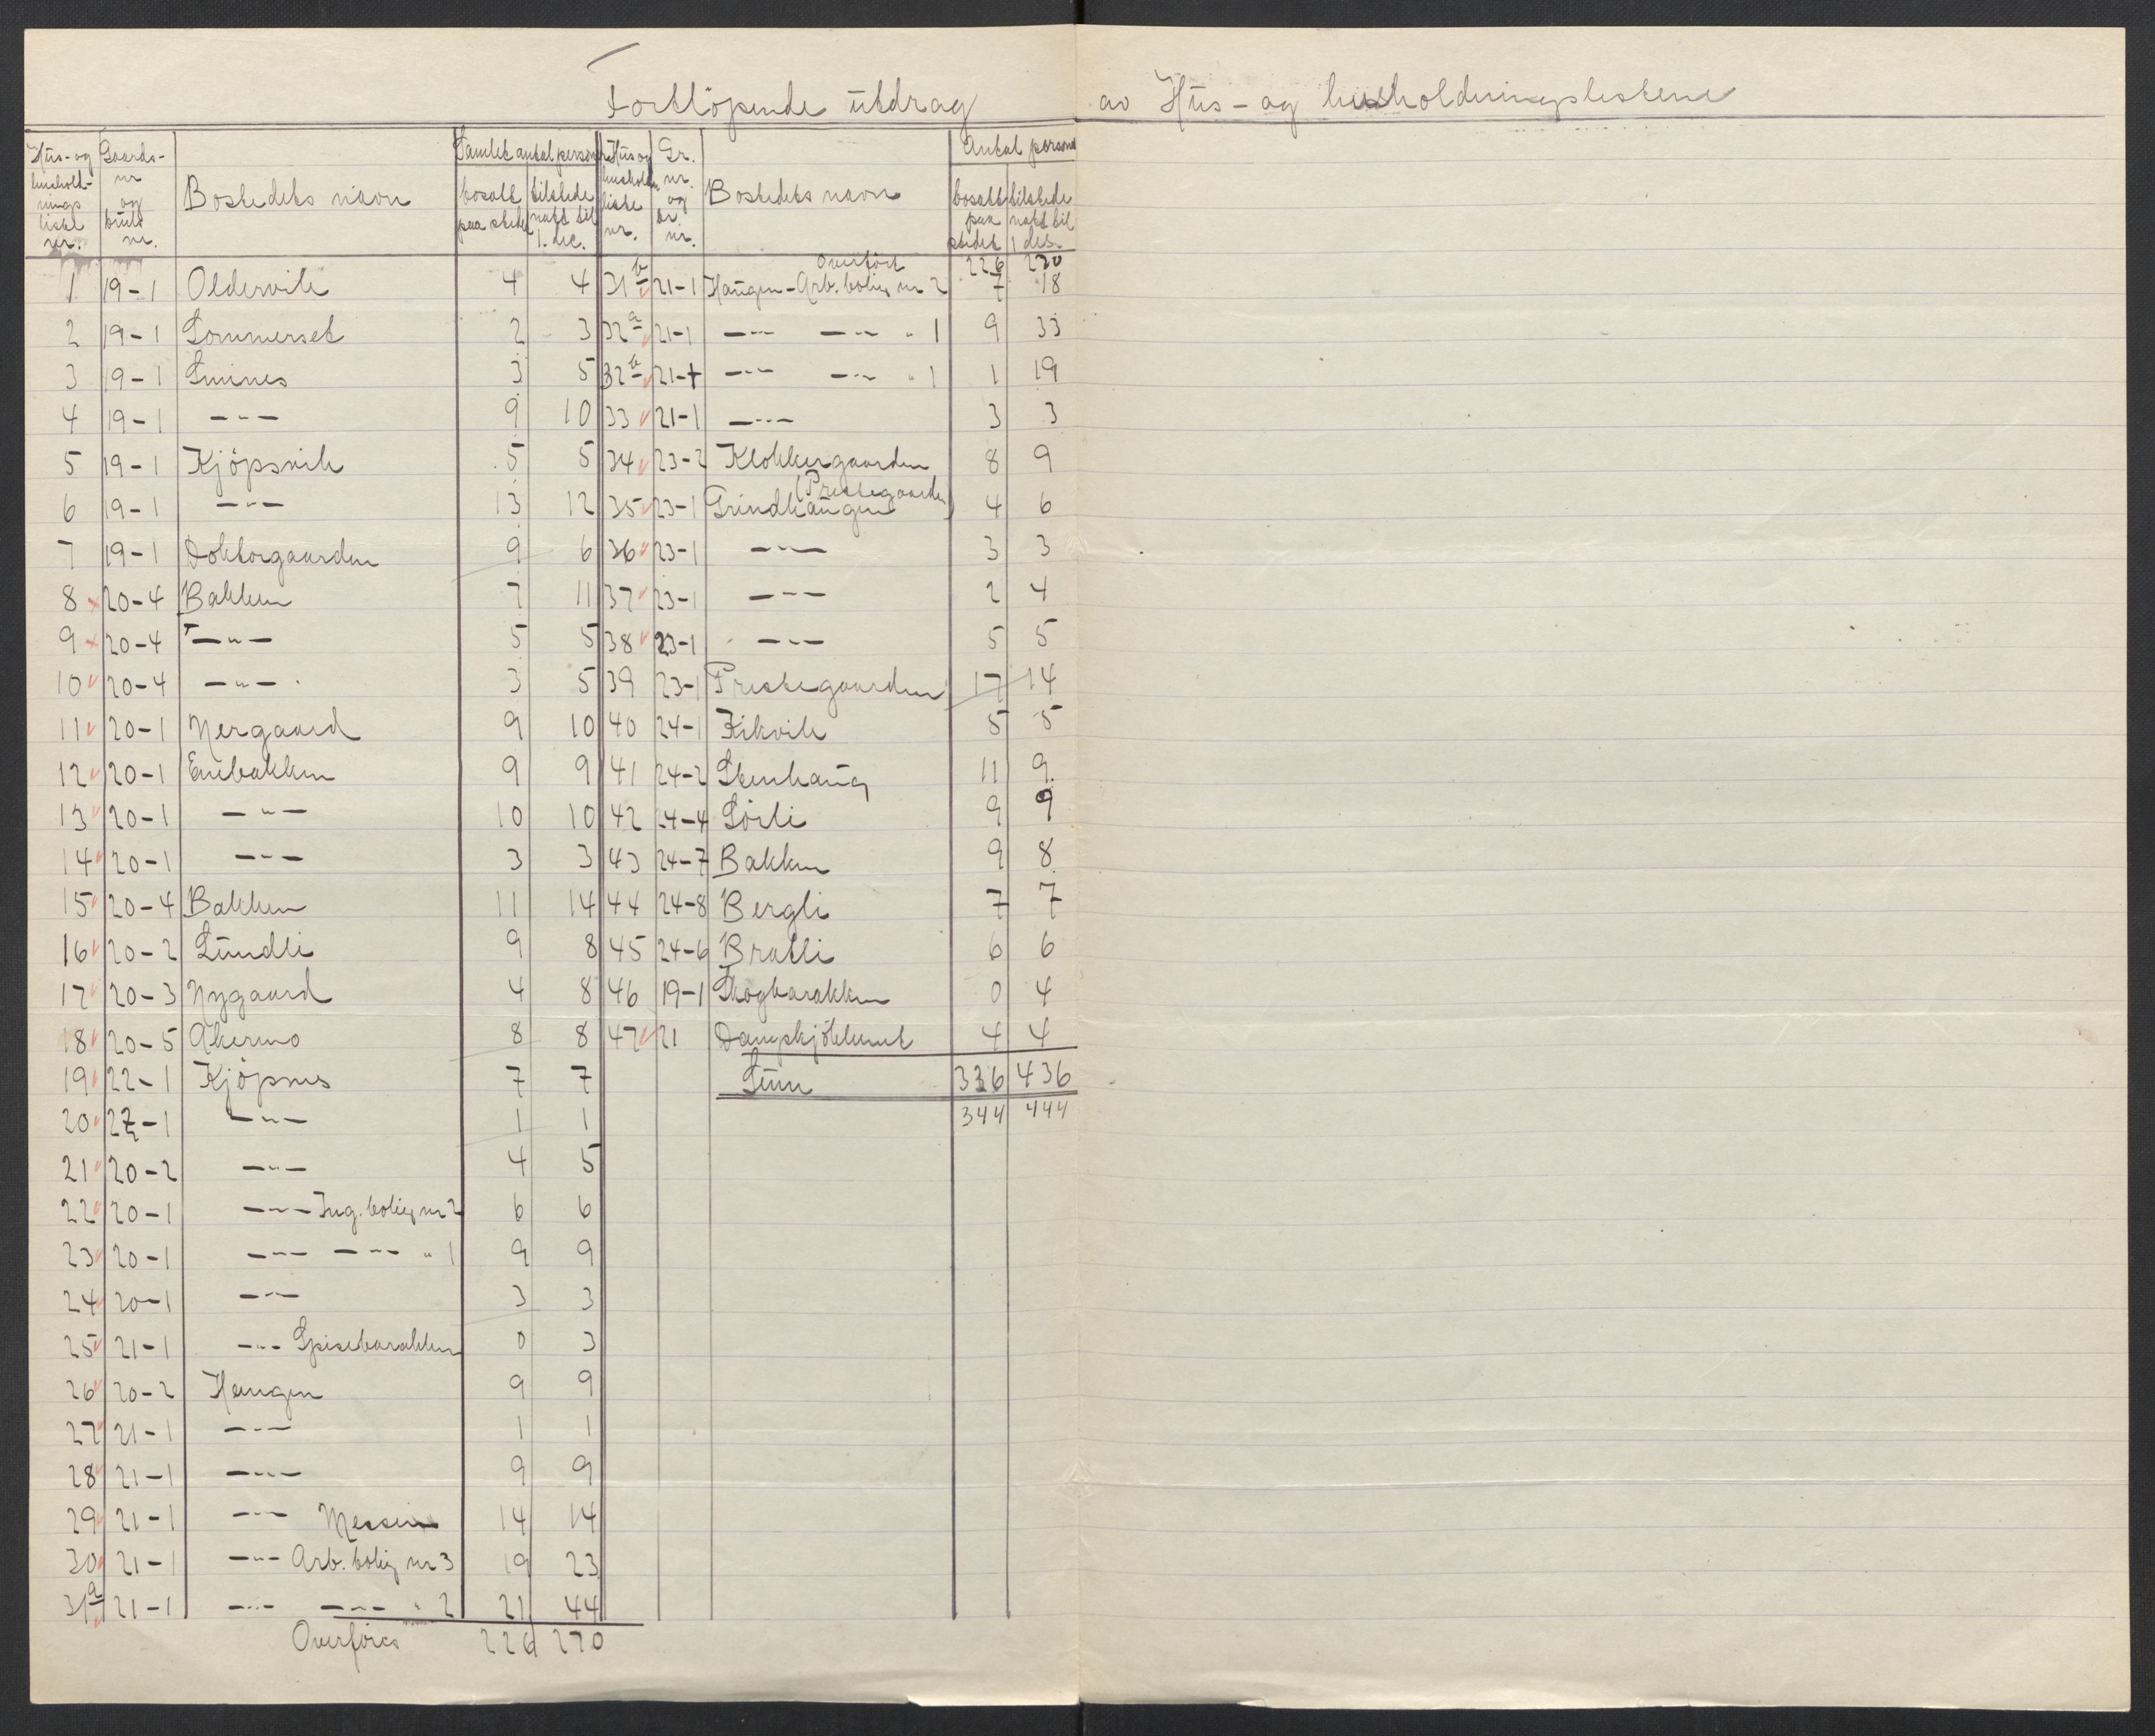 Fortlöpende utdrag av Hus- og husholdningslistene
Hus- og hushold-nings liste nr. | Gaards-nr og bruks nr. | Bostedets navn | Samlet antal personer bosatt paa stedet | tilstede natt til 1. dec. | Hus og hushold. liste nr. | Gr. nr. og br. nr. | Bostedets navn | Antal personer bosatt paa stedet | tilstede natt til 1 des.
Overført 226 270
1 19-1 Oldervik 4 4 31b 21-1 Haugen-Arb. bolig nr 2 7 18
2 19-1 Sommerset 2 3 32a 21-1 -"- -"- " 1 9 33
3 19-1 3 5 32b 21-1 -"- -"- " 1 1 19
4 19-1 -"- 9 10 33 21-1 -"- 3 3
5 19-1 Kjöpsvik 5 5 34 23-2 Klokkergaarden 8 9
6 19-1 -"- 13 12 35 23-1 Grindhaugen (Prestegaarden) 4 6
7 19-1 Doktorgaarden 9 6 36 23-1 -"- 3 3
8 20-4 Bakken 7 11 37 23-1 -"- 2 4
9 20-4 -"- 5 5 38 23-1 -"- 5 5
10 20-4 -"- 3 5 39 23-1 Prestegaarden 17 14
11 20-1 Nergaard 9 10 40 24-1 Kikvik 5 5
12 20-1 Enebakken 9 9 41 24-2 Stenhaug 11 9
13 20-1 -"- 10 10 42 24-4 Sörli 9 9
14 20-1 -"- 3 3 43 24-7 Bakken 9 8
15 20-4 Bakken 11 14 44 24-8 Bergli 7 7
16 20-2 Lundli 9 8 45 24-6 Bratli 6 6
17 20-3 Nygaard 4 8 46 19-1 Skogbarakken 0 4
18 20-5 Akermo 8 8 47 21 4 4
19 22-1 Kjöpsnes 7 7 Sum 336 436
20 22-1 -"- 1 1 344 444
21 20-2 -"- 4 5
22 20-1 -"- Ing. bolig nr 2 6 6
23 20-1 -"- -"- " 1 9 9
24 20-1 -"- 3 3
25 21-1 -"- Spisebarakken 0 3
26 20-2 Haugen 9 9
27 21-1 -"- 1 1
28 21-1 -"- 9 9
29 21-1 -"- Messen 14 14
30 21-1 -"- Arb. bolig nr 3 19 23
31a 21-1 -"- -"- " 2 21 44
Overføres 226 270